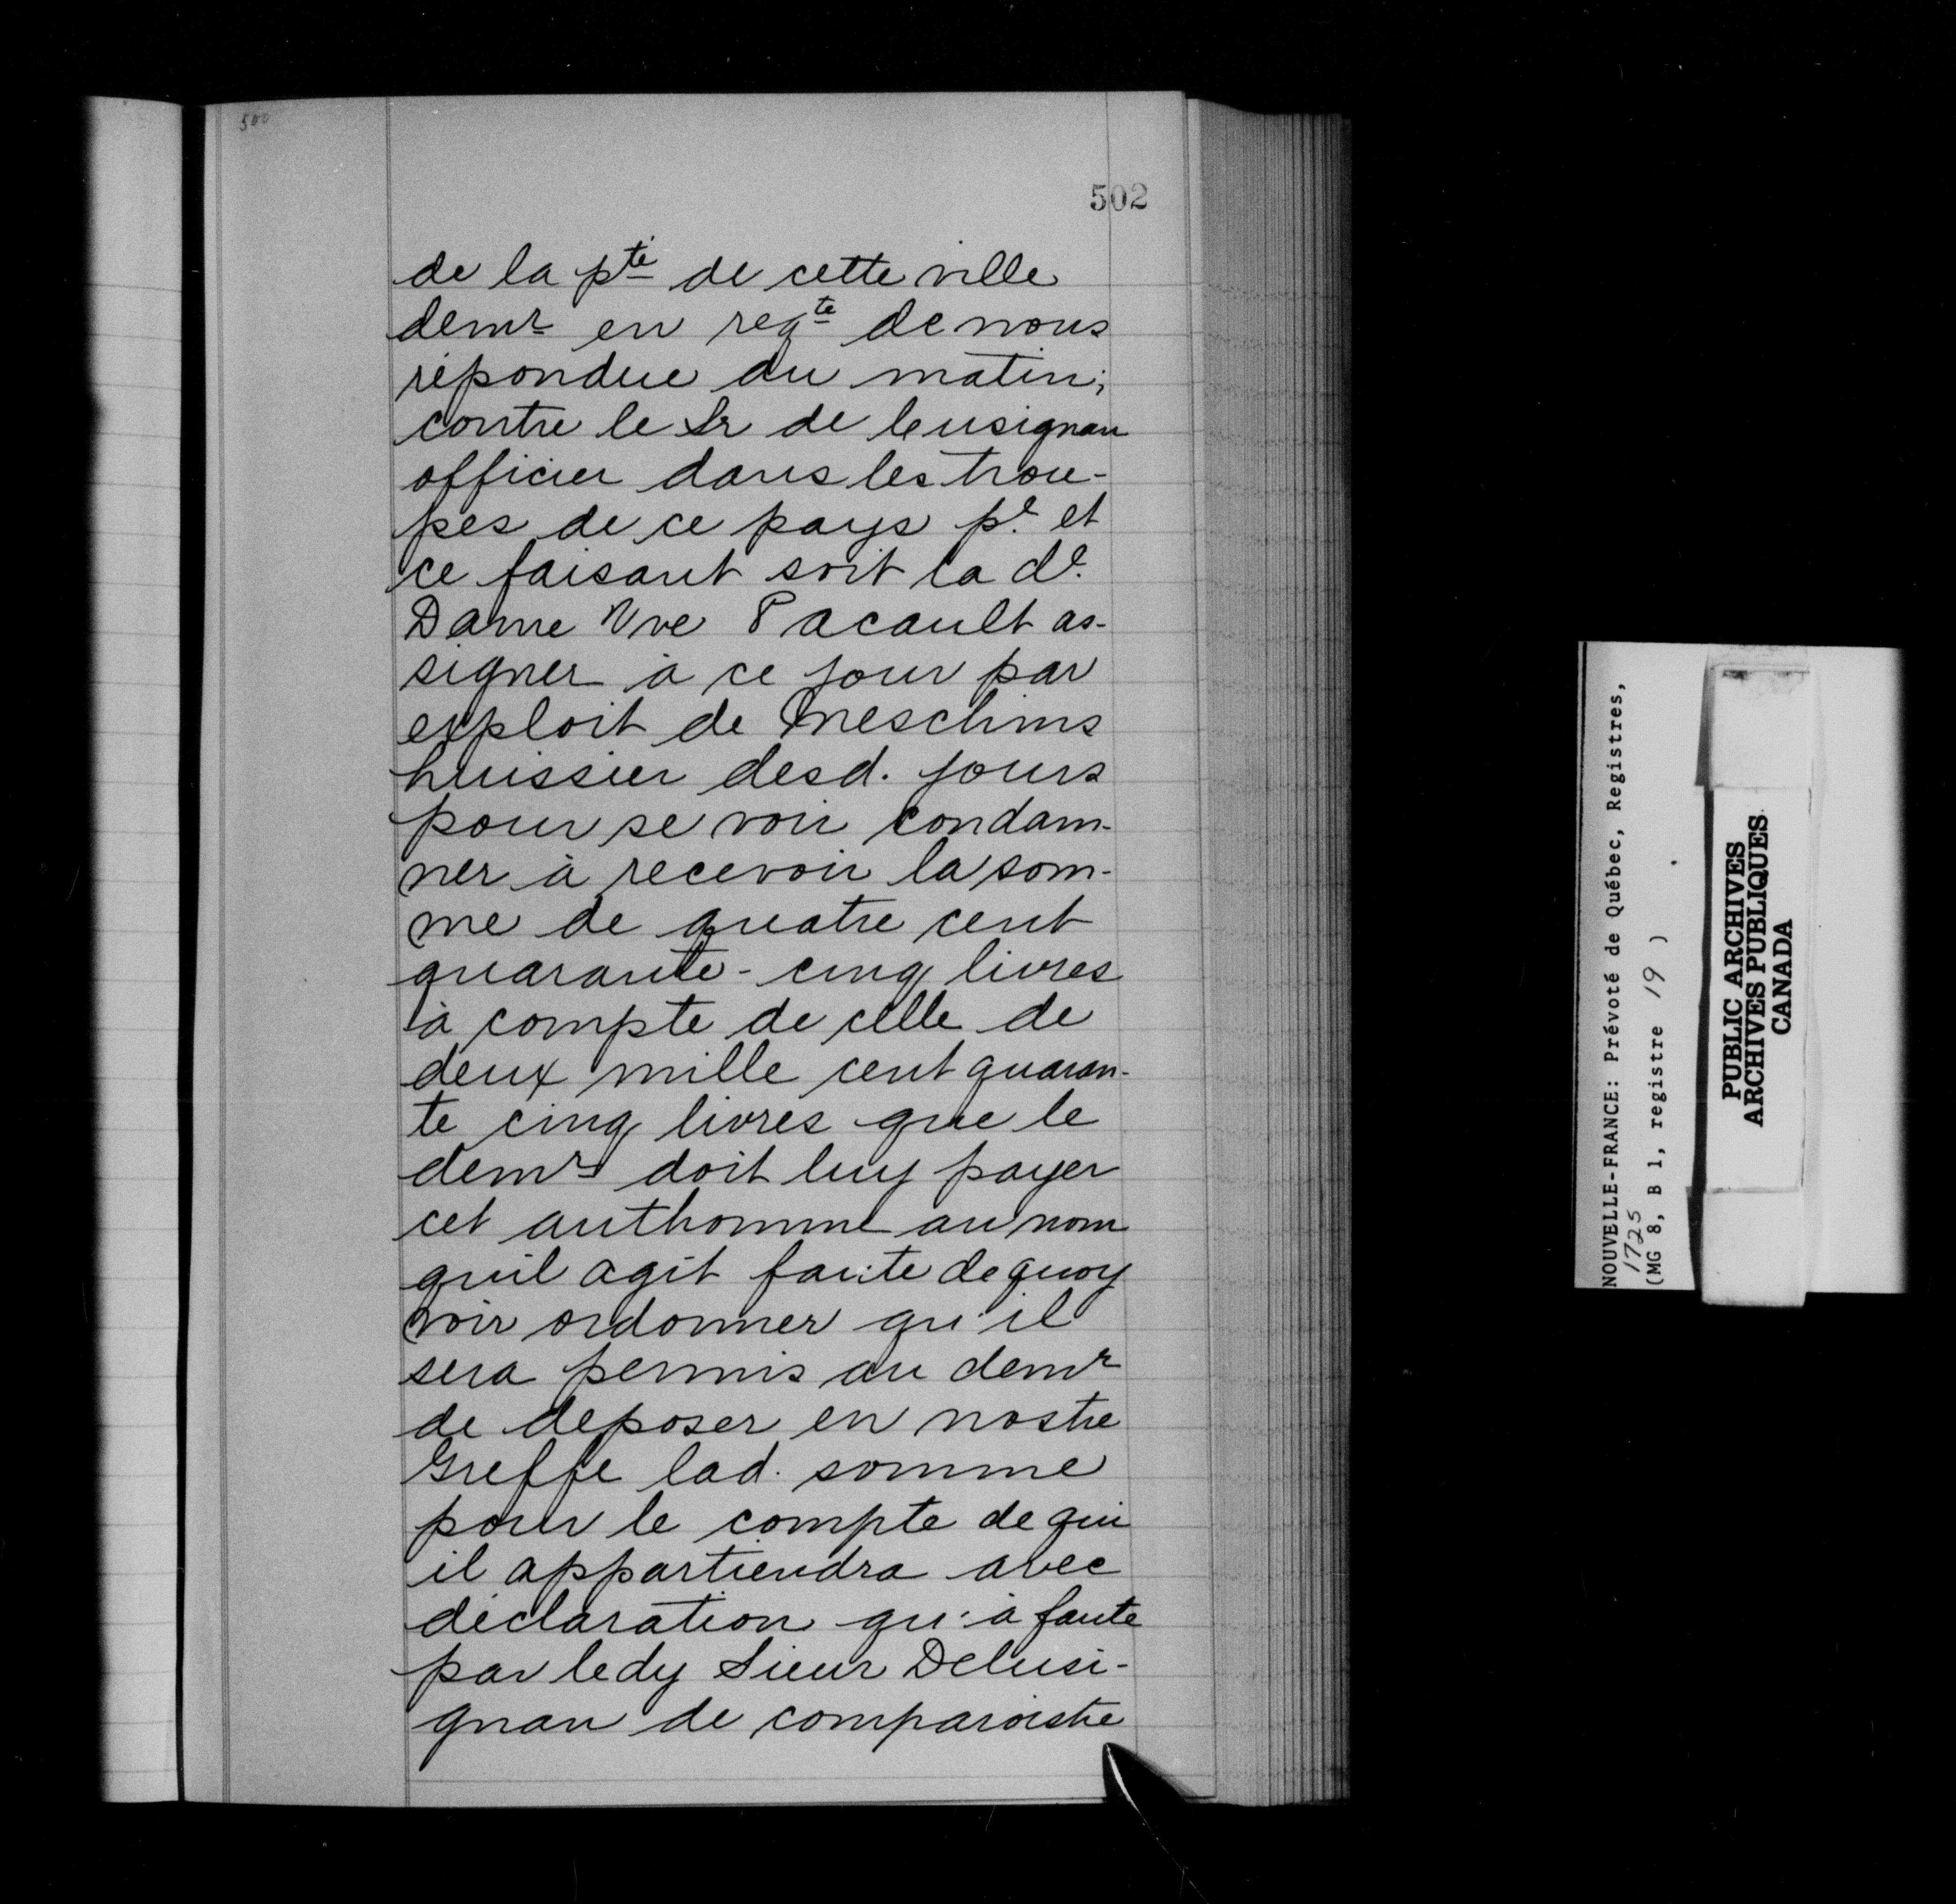 500
502
de la pté de cette ville
demr en reqte de nous
répondue du matin;
contre le Sr de leusignan
officier dans les trou-
pes de ce pays pe. et
ce faisant soit la de.
Dame Vve Pacault as-
signer à ce jour par
exploit de Meschins
huissier desd. jours
pour se voir condam-
ner à recevoir la som-
me de quatre cent
quarante-cinq livres
à compte de celle de
deux mille cent quaran-
te cinq livres que le
demr doit luy payer
cet authomme au nom
quil agit faute de quoy
voir ordonner qu'il
sera permis au demr
de deposer en nostre
Greffe lad. somme
pour le compte de qui
il appartiendra avec
déclaration qu'à faute
par ledy Sieur Delusi-
gnan de comparoistre
NOUVELLE-FRANCE: Prévoté de Québec, Registres,
1725
(MG 8, B 1, registre 19 )
PUBLIC ARCHIVES
ARCHIVES PUBLIQUES
CANADA